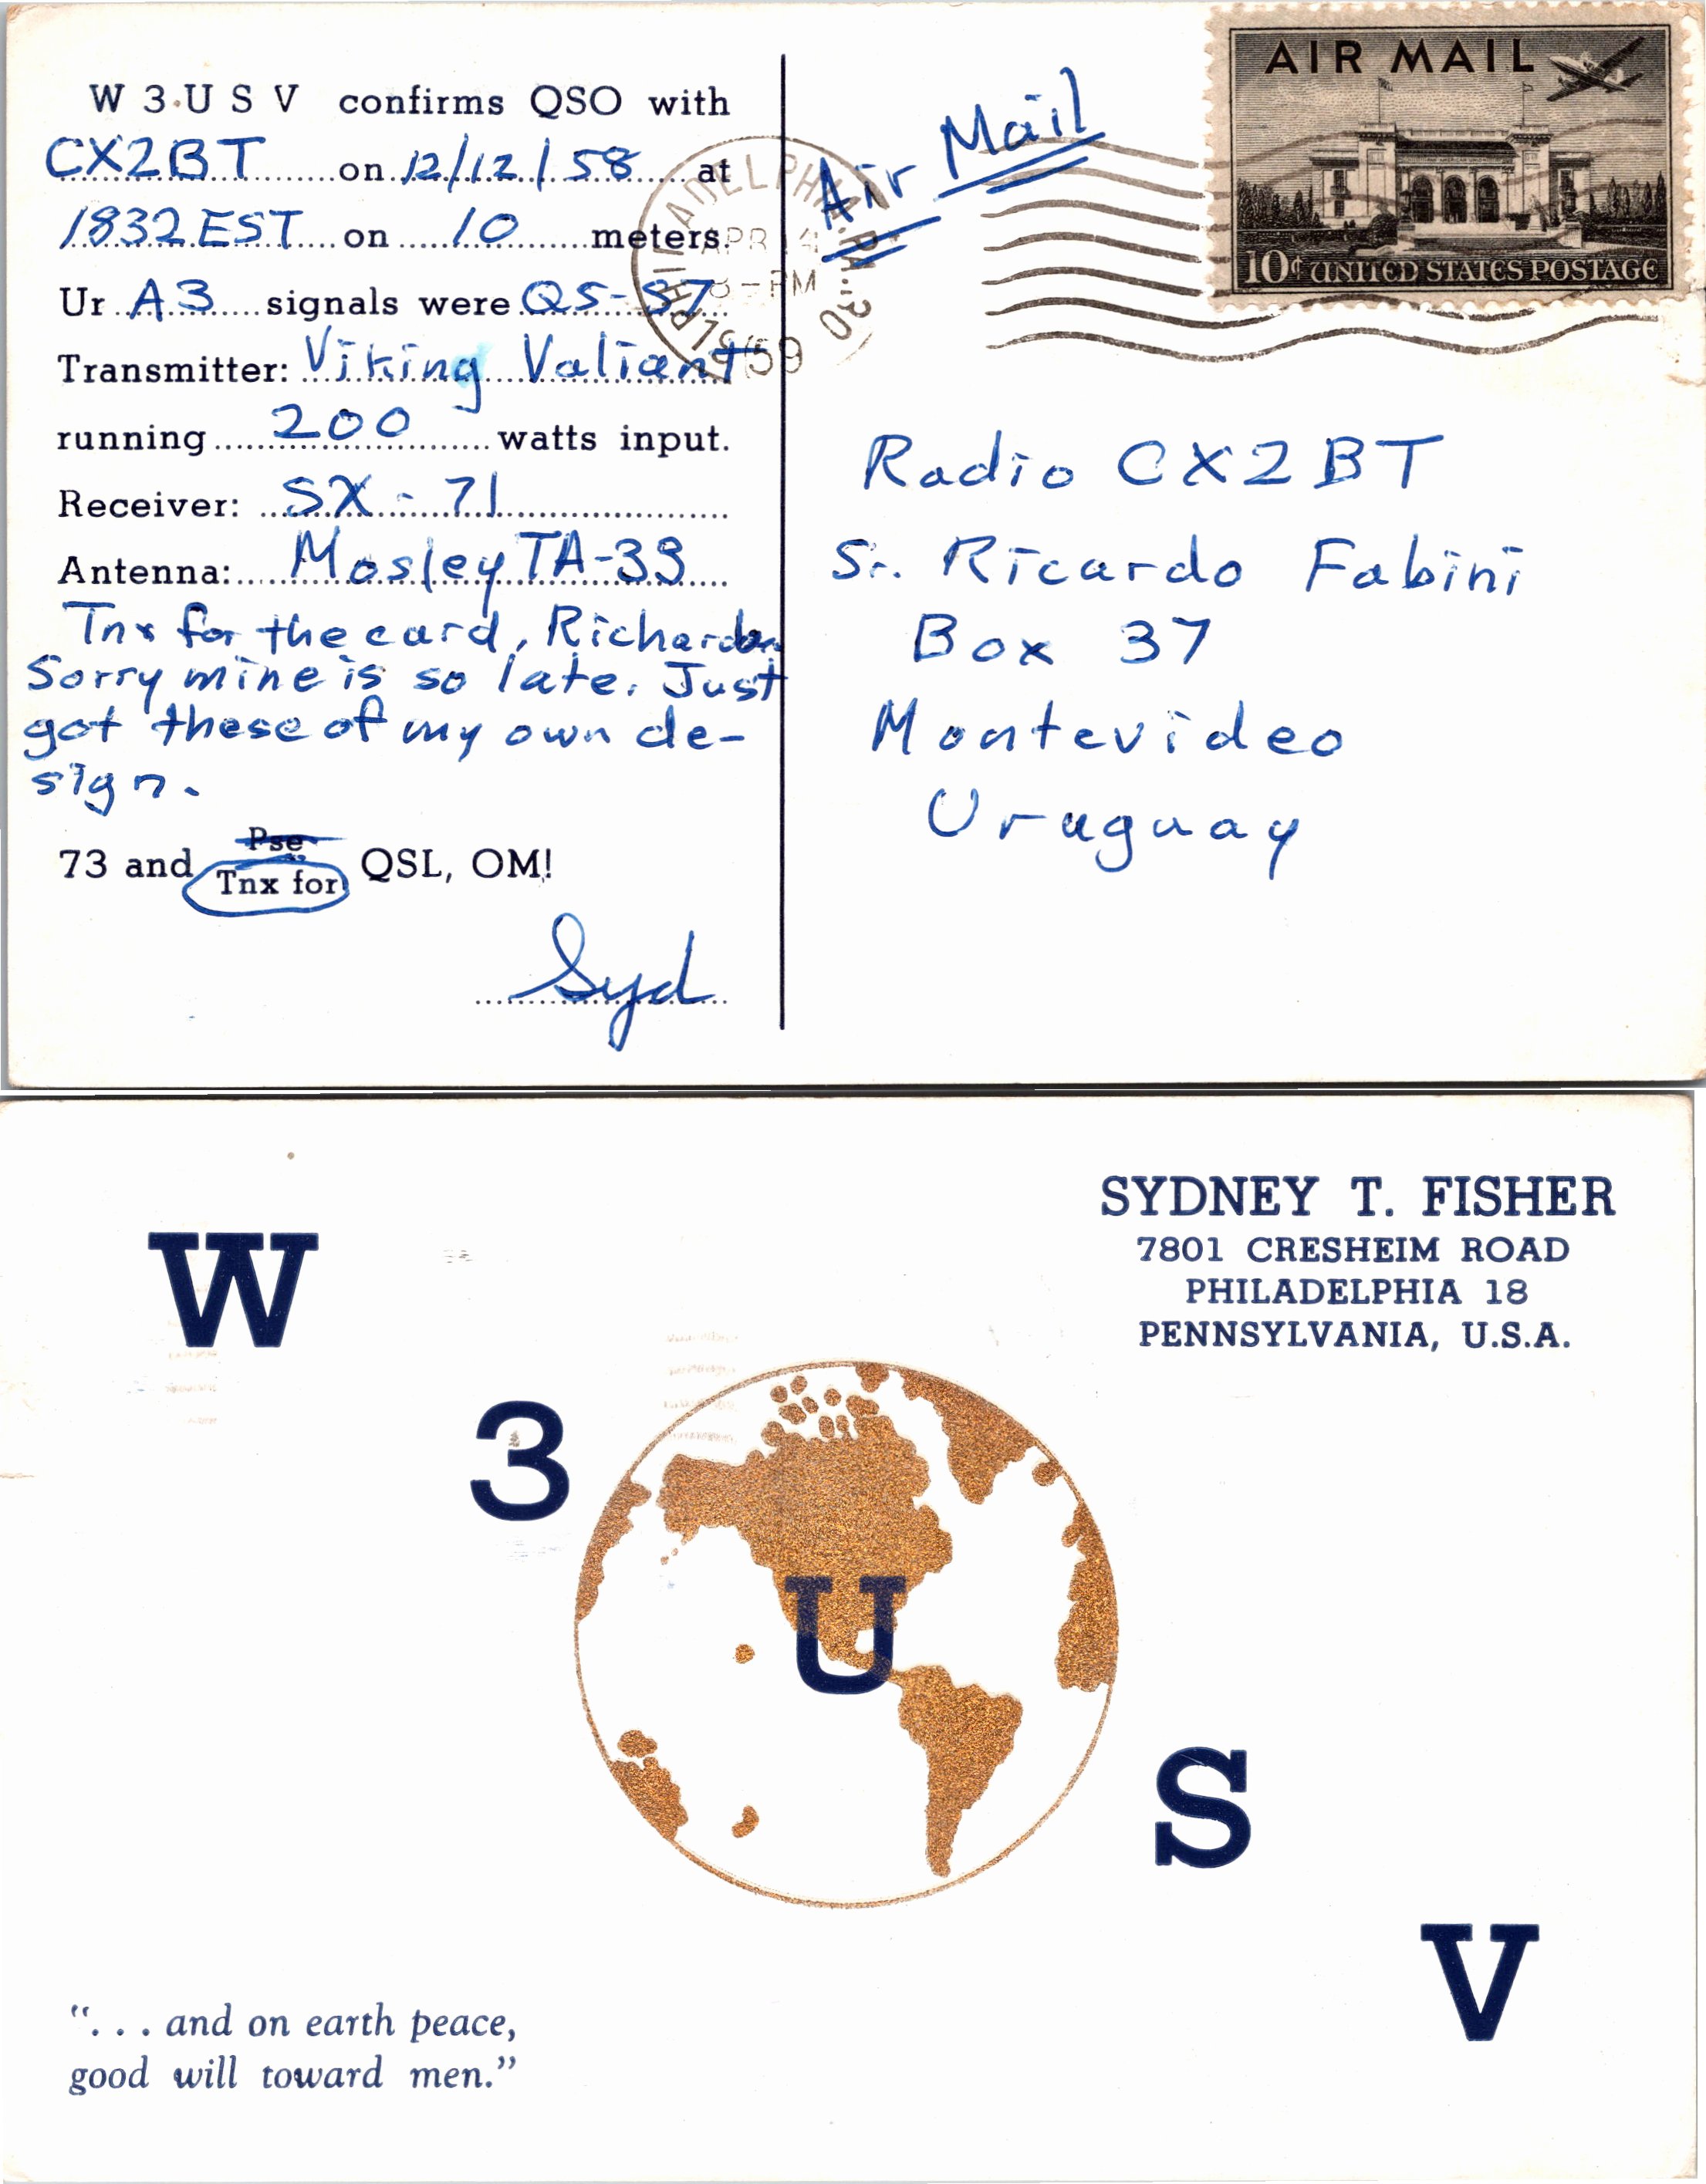 W 3 U S V confirms QSO with
CX2BT on 12/12/58 at
1832 EST on 10 meters.
Ur A3 signals were Q5-S7
Transmitter: Viking Valiant
running 200 watts input.
Receiver: SX-71
Antenna: Mosley TA-33
Tnx for the card,
Sorry mine is so late. Just
got these of my own de-
sign.
73 and Pse Tnx for QSL, OM!
Syd
Air Mail
PHILADELPHIA, PA. 30
APR 14
8-PM
1959
AIR MAIL
10¢ UNITED STATES POSTAGE
Radio CX2BT
Sr. Ricardo Fabini
Box 37
Montevideo
Uruguay
SYDNEY T. FISHER
7801 CRESHEIM ROAD
PHILADELPHIA 18
PENNSYLVANIA, U.S.A.
W
3
U
S
V
“. . . and on earth peace,
good will toward men.”